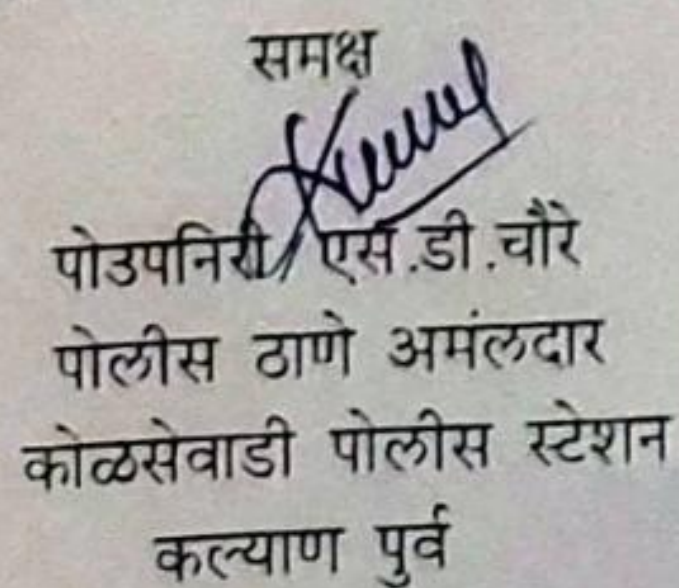 समक्ष
पोउपनिरी/ एस.डी.चौरे
पोलीस ठाणे अमंलदार
कोळसेवाडी पोलीस स्टेशन
कल्याण पुर्व